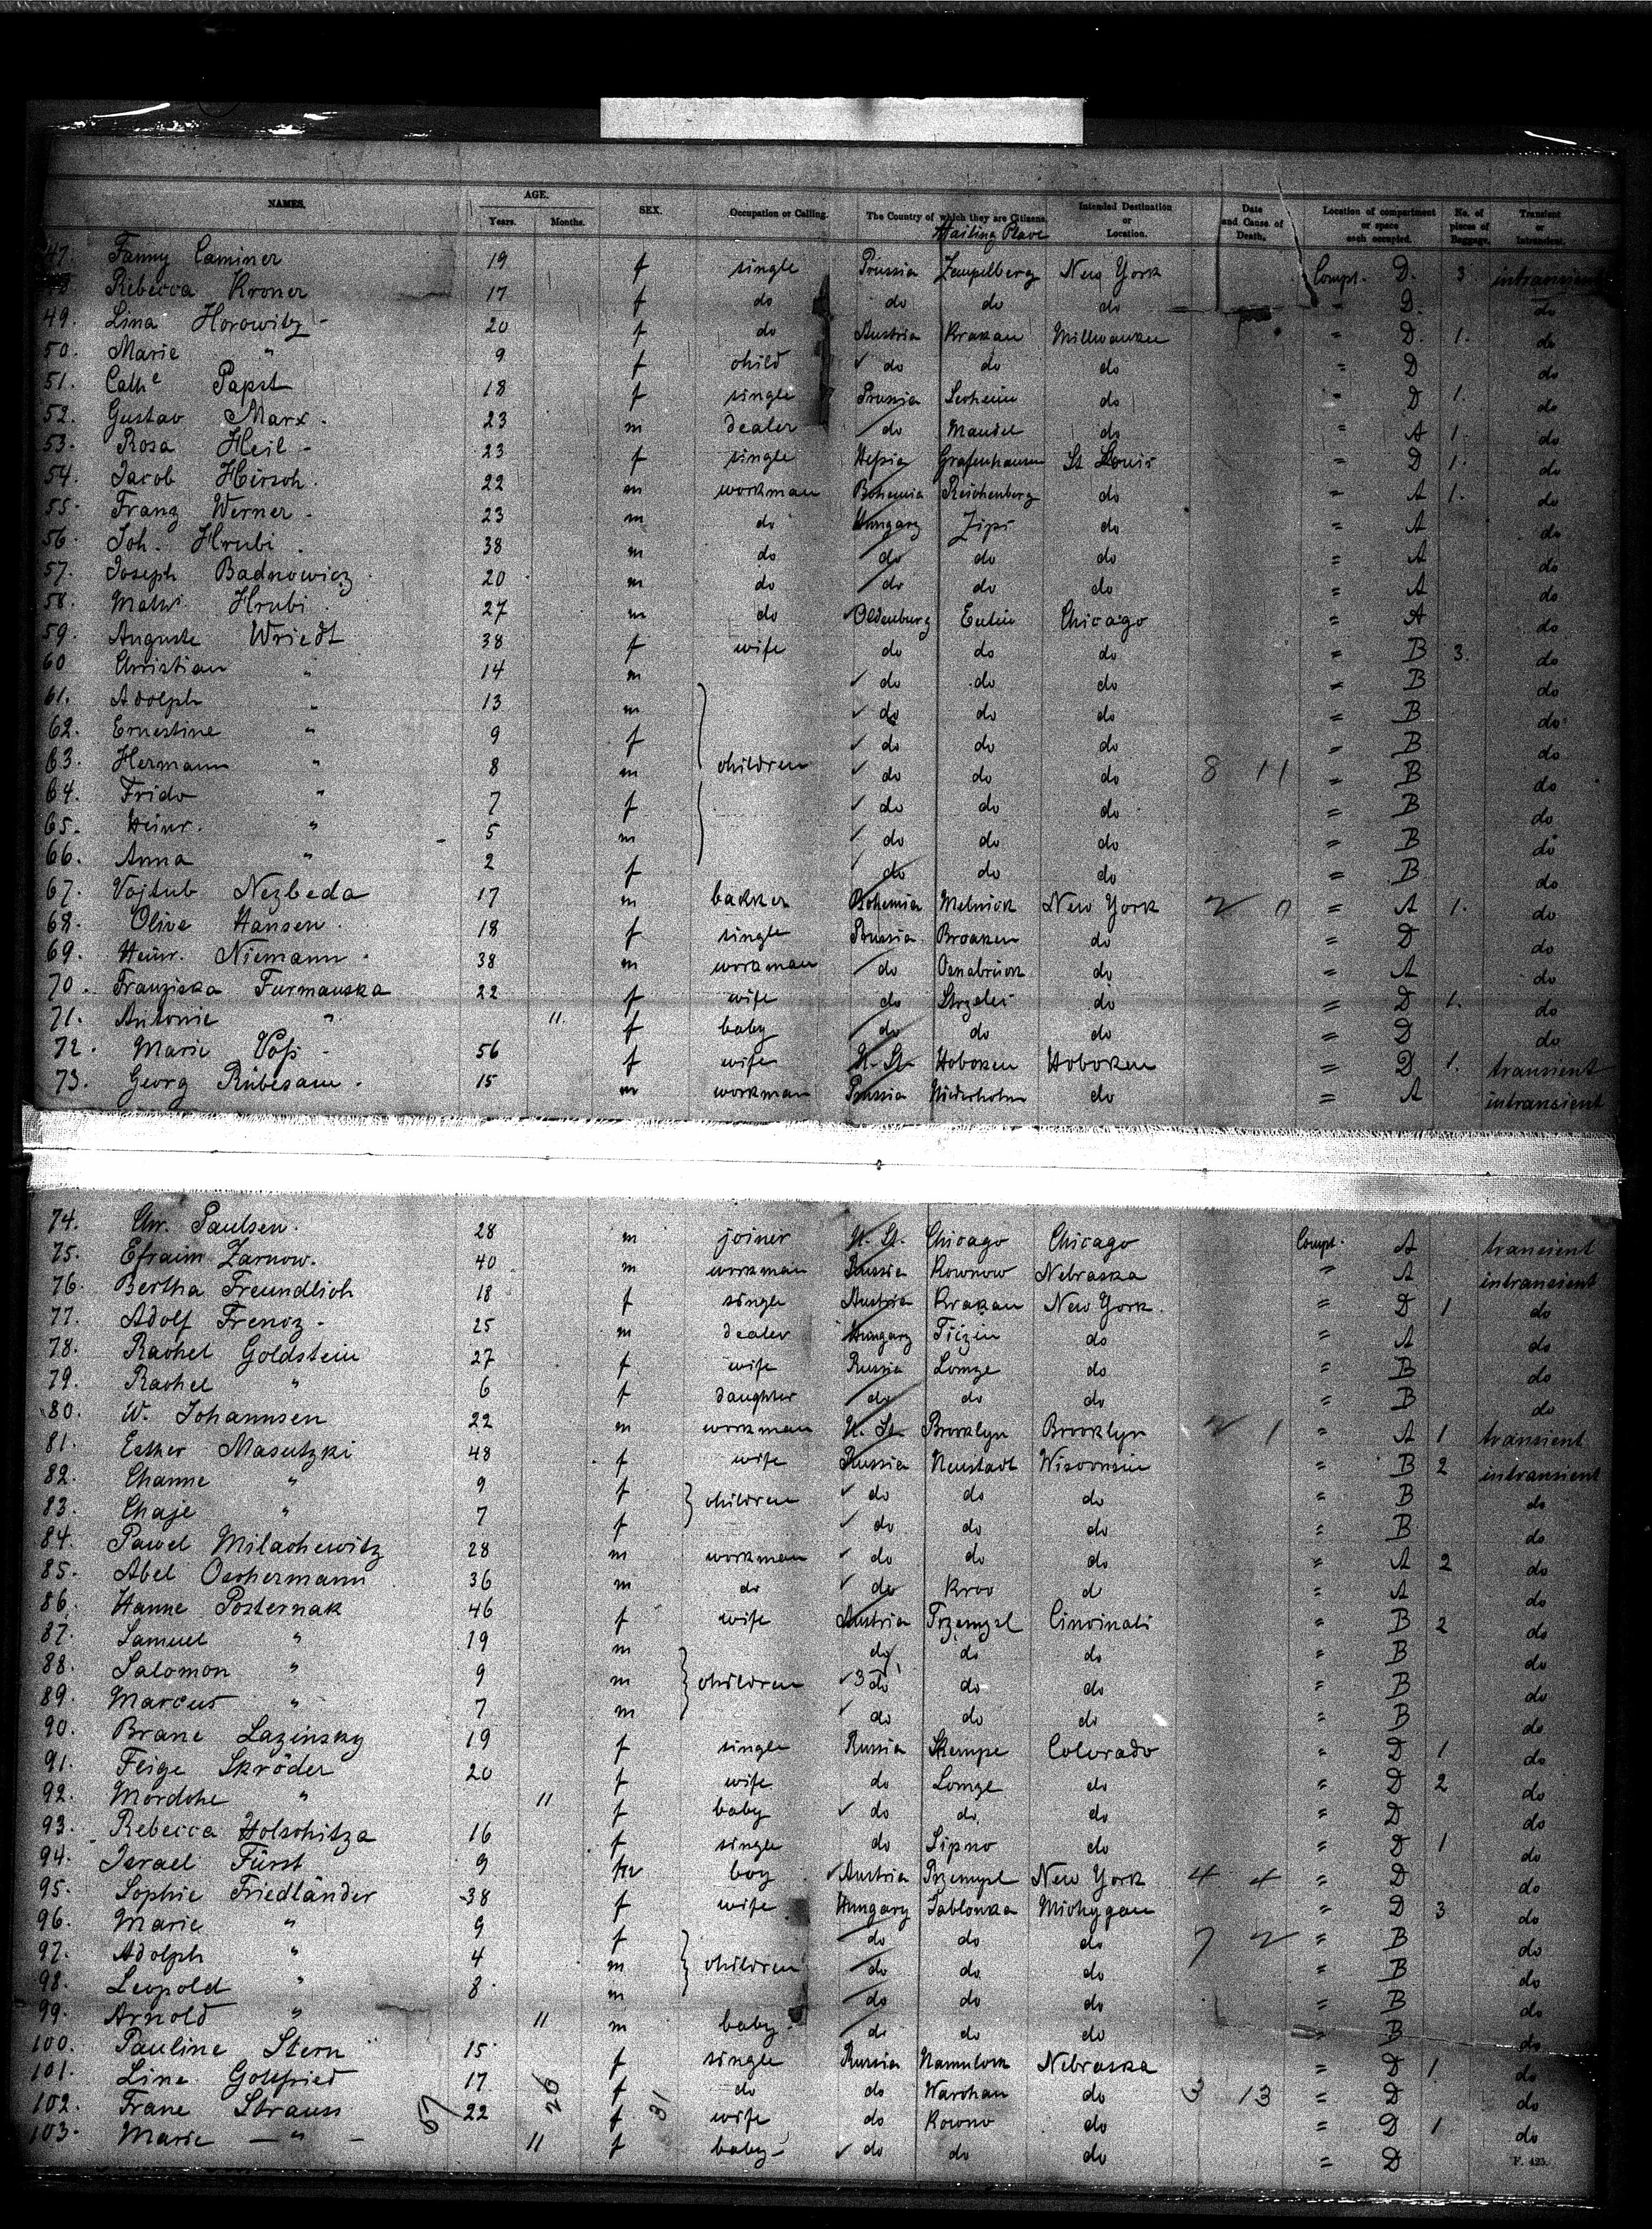 NAMES. AGE. Years. Months. SEX. Occupation or Calling. The Country of which they are Citizens. Hailing Place Intended Destination or Location. Date and Cause of Death. Location of compartment or space each occupied. No. of pieces of Baggage. Transient or Intransient.
47. Fanny Caminer 19 f single Prussia Zempelberg New York Compt. D. 3. intransient
48 Rebecca Kroner 17 f do do do do " D. do
49. Lina Horowitz 20 f do Austria Krakau Millwaukee " D. 1. do
50. Marie " 9 f child do do do " D do
51. Cathe Papst 18 f single Prussia do " D 1. do
52. Gustav Marx. 23 m dealer do Mandel do " A 1. do
53. Rosa Heil 23 f single Heßia Grafenhausen St Louis " D 1. do
54. Jacob Hirsch. 22 m workman Bohemia Reichenberg do " A 1. do
55. Franz Werner 23 m do Hungary Zips do " A do
56. Joh. Hrubi 38 m do do do do " A do
57. Joseph Badnowicz 20 m do do do do " A do
58. Hrubi 27 m do Oldenburg Eutin Chicago " A do
59. Auguste Wriedt 38 f wife do do do " B 3. do
60 Christian " 14 m do do do " B do
61. Adolph " 13 m do do do " B do
62. Ernestine " 9 f do do do " B do
63. Hermann " 8 m children do do do 8 11 " B do
64. Frido " 7 f do do do " B do
65. Heinr. " 5 m do do do " B do
66. Anna " 2 f do do do " B do
67. Vojtub Nezbeda 17 m backer Bohemia Melnick New York 2 0 " A 1. do
68. Olive Hansen 18 f single Prussia Broaken do " D do
69. Heinr. Niemann 38 m workman do Osnabrück do " A do
70. Franziska Furmanska 22 f wife do do " D 1. do
71. Antonie " 11. f baby do do do " D do
72. Marie Voß 56 f wife U. St. Hoboken Hoboken " D 1. transient
73. Georg Rübesam. 15 m workman Prussia do " A intransient
74. Chr. Paulsen. 28 m joiner U. St. Chicago Chicago Compt. A transient
75. Efraim Zarnow. 40 m workman Russia Kownow Nebraska " A intransient
76. Bertha Freundlich 18 f single Austria Krakau New York. " D 1 do
77. Adolf Frencz 25 m dealer Hungary do " A do
78. Rachel Goldstein 27 f wife Russia Lomze do " B do
79. Rachel " 6 f daughter do do do " B do
80. W. Johannsen 22 m workman U. St. Brooklyn Brooklyn 2 1 " A 1 transient
81. Esther Masutzki 48 f wife Russia Neustadt Wisconsin " B 2 intransient
82. Channe " 9 f children do do do " B do
83. Chaje " 7 f do do do " B do
84. Pawel Milachewitz 28 m workman do do do " A 2 do
85. Abel Oschermann 36 m do do Krov d " A do
86. Hanne Posternak 46 f wife Austria Przemysl Cincinati " B 2 do
87. Samuel " 19 m do do do " B do
88. Salomon " 9 m children 3 do do do " B do
89. Marcus " 7 m do do do " B do
90. Brane Lazinsky 19 f single Russia Skempe Colorado " D 1 do
91. Feige Skröder 20 f wife do Lomze do " D 2 do
92. Mordche " 11 f baby do do do " D do
93. Rebecca Holschitza 16 f single do Lipno do " D 1 do
94. Israel Fürst 9 m boy Austria Przemysl New York 4 4 " D do
95. Sophie Friedländer 38 f wife Hungary Jablonka Michygan " D 3 do
96. Marie " 9 f do do do 7 2 " B do
97. Adolph " 4 m children do do do " B do
98. Leopold " 8 m do do do " B do
99. Arnold " 11 m baby do do do " B do
100. Pauline Stern 15 f single Russia Nebraska " D 1 do
101. Line Gottfried 17 f do do Warchau do 3 13 " D do
102. Frane Strauss 57 22 26 f 31 wife do Kowno do " D 1 do
103. Marie " 11 f baby do do do " D
F. 425.